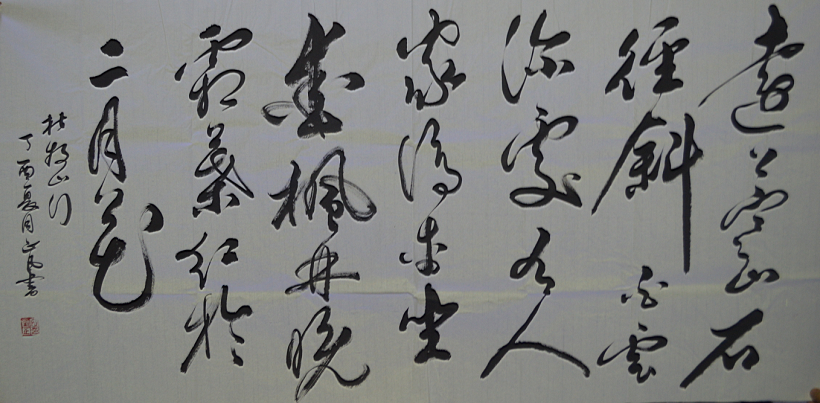 遠上寒山石
徑斜白雲
深處有人
家停車坐
愛楓林晚
霜葉紅於
二月花
杜牧山行
丁酉夏月書